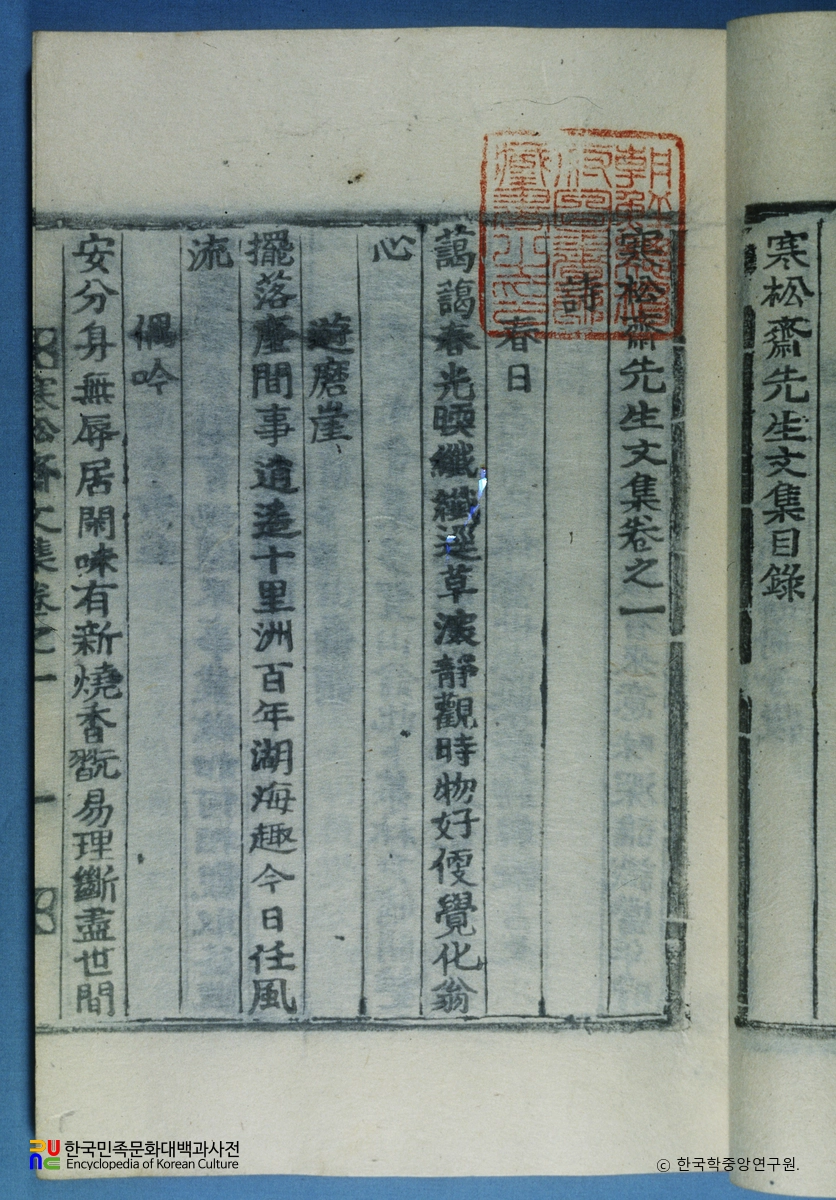 寒松齋先生文集目錄
寒松齋先生文集卷之一
詩
春日
藹藹春光暎纖纖逕草濃靜觀時物好便覺化翁
心
遊磨崖
擺落塵間事逍遙十里洲百年湖海趣今日任風
流
偶吟
安分身無辱居閑味有新燒香翫易理斷盡世間
寒松齋文集卷之一
一
한국민족문화대백과사전
Encyclopedia of Korean Culture
© 한국학중앙연구원.